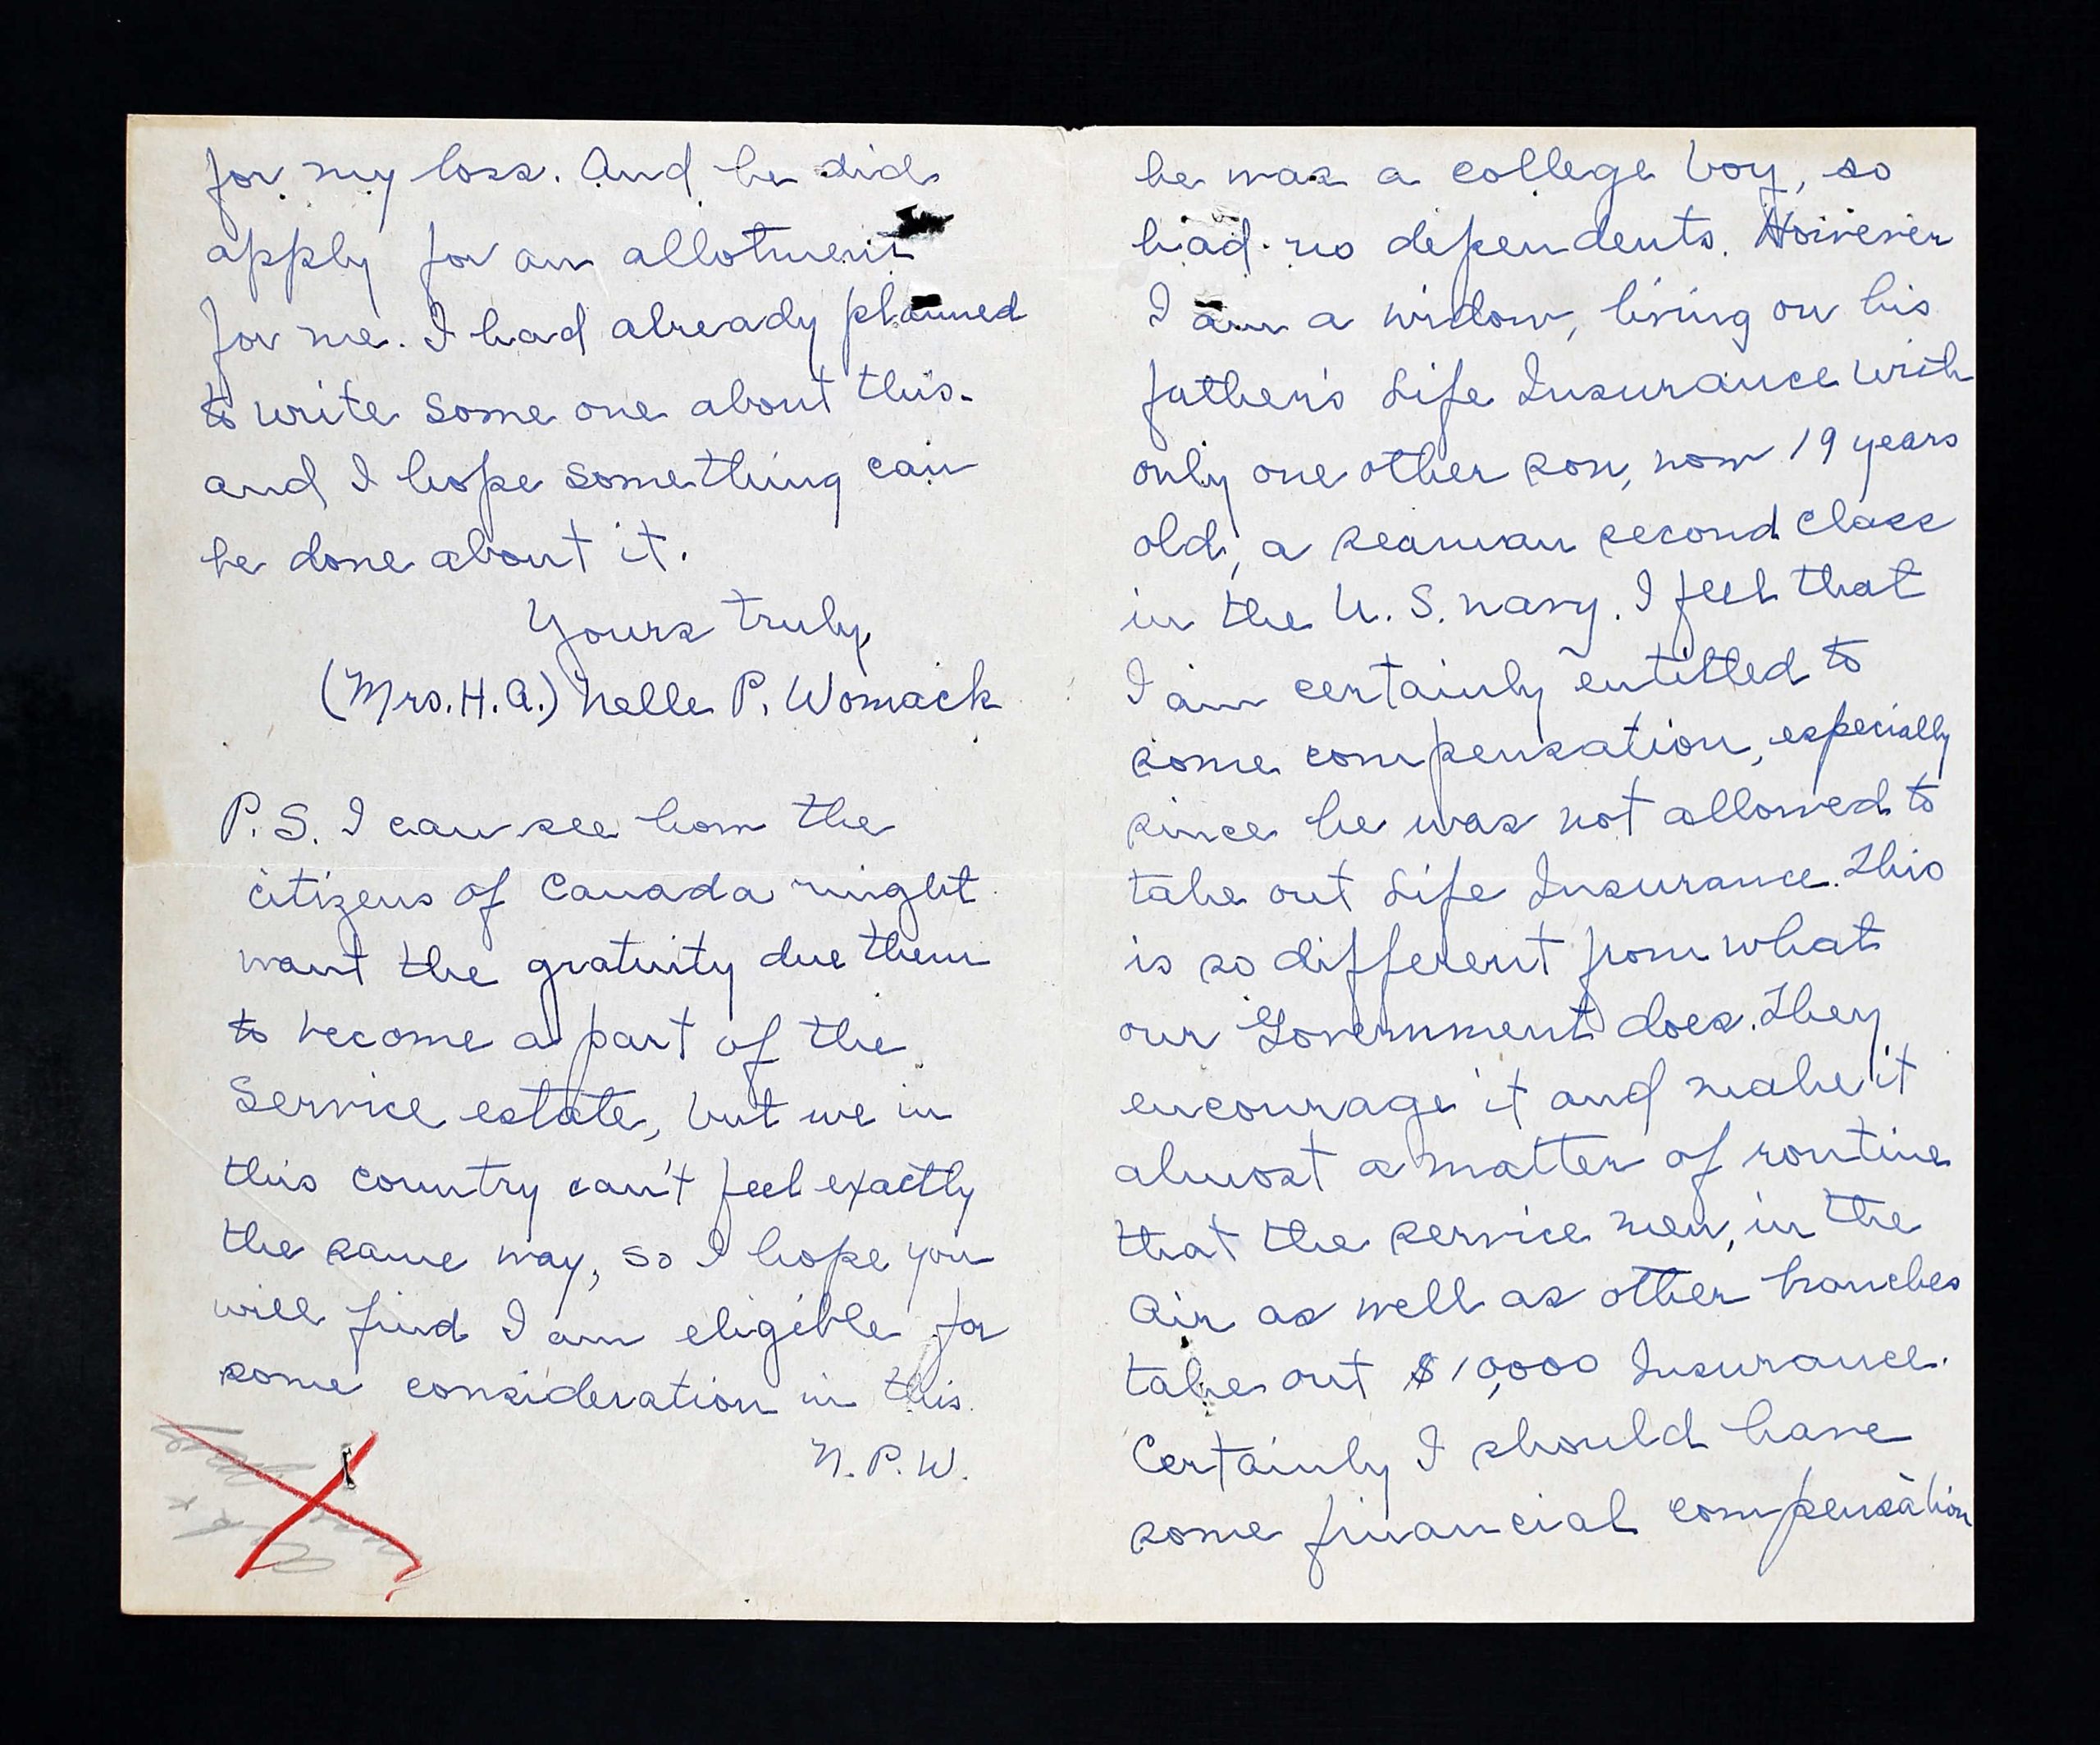 he was a college boy, so
had no dependents. However
I am a widow, living on his
father's Life Insurance with
only one other son, now 19 years
old, a seaman second class
in the U. S. navy. I feel that
I am certainly entitled to
some compensation, especially
since he was not allowed to
take out Life Insurance. This
is so different from what
our Government does. They
encourage it and make it
almost a matter of routine
that the service men, in the
Air as well as other branches
take out $10,000 Insurance.
Certainly I should have
some financial compensation
for my loss. And he did
apply for an allotment
for me. I had already planned
to write some one about this.
and I hope something can
be done about it.
Yours truly,
(Mrs. H. A.) Nelle P. Womack
P. S. I can see how the
citizens of Canada might
want the gratuity due them
to become a part of the
Service estate, but we in
this country can't feel exactly
the same way, so I hope you
will find I am eligible for
some consideration in this.
N. P. W.